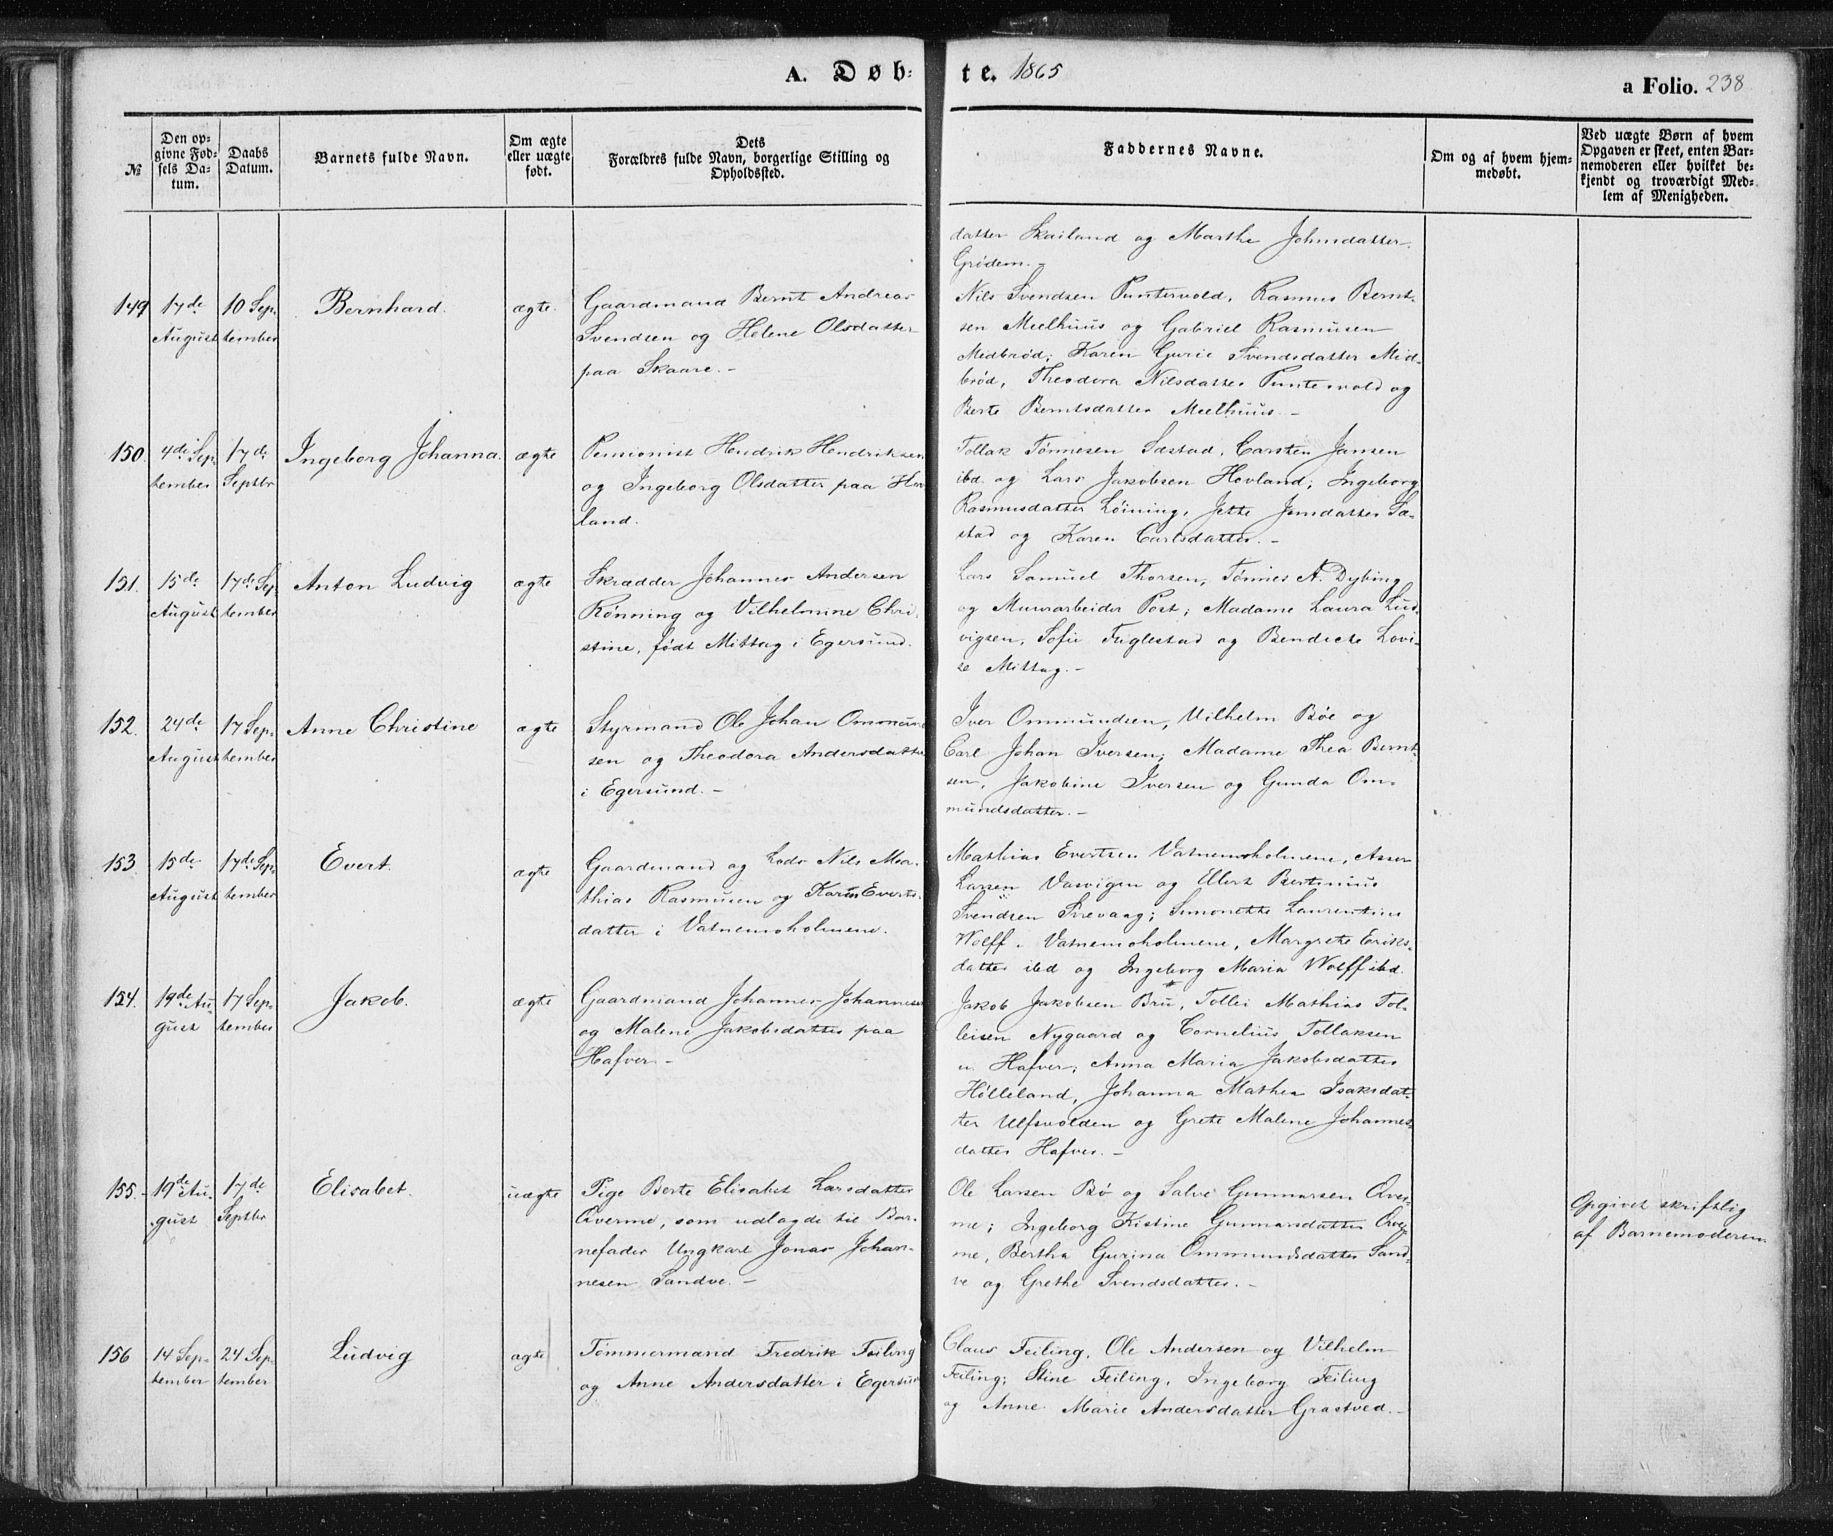 A. Døb-te. 1865
a Folio. 238
№
Den op-
givne Fød-
sels Da-
tum.
Daabs
Datum.
Barnets fulde Navn.
Om ægte
eller uægte
født.
Dets
Forældres fulde Navn, borgerlige Stilling og
Opholdssted.
Faddernes Navne.
Om og af hvem hjem-
medøbt.
Ved uægte Børn af hvem
Opgaven er skeet, enten Bar-
nemoderen eller hvilket be-
kjendt og troværdigt Med-
lem af Menigheden.
datter Skailand og Marthe Johnsdatter
Gridem. -
149
17de
August
10 Sep-
tember
Bernhard.
ægte.
Gaardmand Bernt Andreas
Svendsen og Helene Olsdatter
paa Skaare. -
Nils Svendsen Puntervold, Rasmus Bernt-
sen Meelhuus og Gabriel Rasmusen
Medbrød; Karen Gurie Svendsdatter Mid-
brød, Theodora Nilsdatter Puntervold og
Berte Berntsdatter Meelhuus. -
150.
4de Sep-
tember
17de
Septbr
Ingeborg Johanna.
ægte
Pensionist Hendrik Hendriksen
og Ingeborg Olsdatter paa Hov
land.
Tollak Tønnesen Sæstad, Carsten Jansen
ibd. og Lars Jakobsen Hovland; Ingeborg
Rasmusdatter Løining, Jette Jensdatter Sæ-
stad og Karen Carlsdatter. -
151.
15de
August
17de Sep
tember
Anton Ludvig
ægte
Skrædder Johannes Andersen
Rønning og Vilhelmine Chri-
stine, født Mittag i Egersund.
Lars Samuel Thorsen, Tønnes A. Dybing
og Muurarbeider Post; Madame Laura Lud-
vigsen, Sofie Fuglestad og Bendicte Lovi-
se Mittag. -
152.
24de
August
17 Sep-
tember
Anne Christine
ægte
Styrmand Ole Johan Ommund
sen og Theodora Andersdatter
i Egersund. -
Iver Ommundsen, Vilhelm Bøe og
Carl Johan Iversen; Madame Thea Bernt-
sen, Jakobine Iversen og Gunda Om-
mundsdatter. -
153
15de
August
17de Sep
tember
Evert.
ægte
Gaardmand og Lods Nils Ma-
thias Rasmusen og Karen Everts-
datter i Vatnemoholmene.
Mathias Evertsen Vatnemoholmene, Asser
Larsen Vasvigen og Ellert Bertinius
Svendsen Sirevaag; Simonette Laurentine
Wolff, Vatnemoholmene, Margrete Eriks-
datter ibd og Ingeborg Maria Wolff ibd.
154.
19de Au-
gust
17 Sep-
tember
Jakob.
ægte
Gaardmand Johannes Johannesen
og Malene Jakobsdatter paa
Hafver -
Jakob Jakobsen Bru, Tollei Mathias Tol-
leisen Nygaard og Cornelius Tollaksen
u. Hafver; Anna Maria Jakobsdatter
Hølleland, Johanna Mathea Isaksdat-
ter Ulfsvolden og Grete Malene Johannes-
datter Hafver. -
155.
19de Au-
gust
17de
Septbr
Elisabet.
uægte
Pige Berte Elisabet Larsdatter
Qverme, som udlagde til Bar-
nefader Ungkarl Jonas Johan-
nesen Sandve. -
Ole Larsen Bø og Salve Gunnarsen Qver-
me; Ingeborg Kistine Gunnarsdatter Qver
me, Bertha Gurina Ommundsdatter Sand-
ve og Grethe Svendsdatter. -
Opgivet skriftlig
af Barnemoderen
156
14 Sep-
tember
24 Sep-
tember
Ludvig
ægte
Tømmermand Fredrik Feiling
og Anne Andersdatter i Egersund
Claus Feiling, Ole Andersen og Vilhelm
Feiling; Stine Feiling, Ingeborg Feiling
og Anne Marie Andersdatter Grastved. -